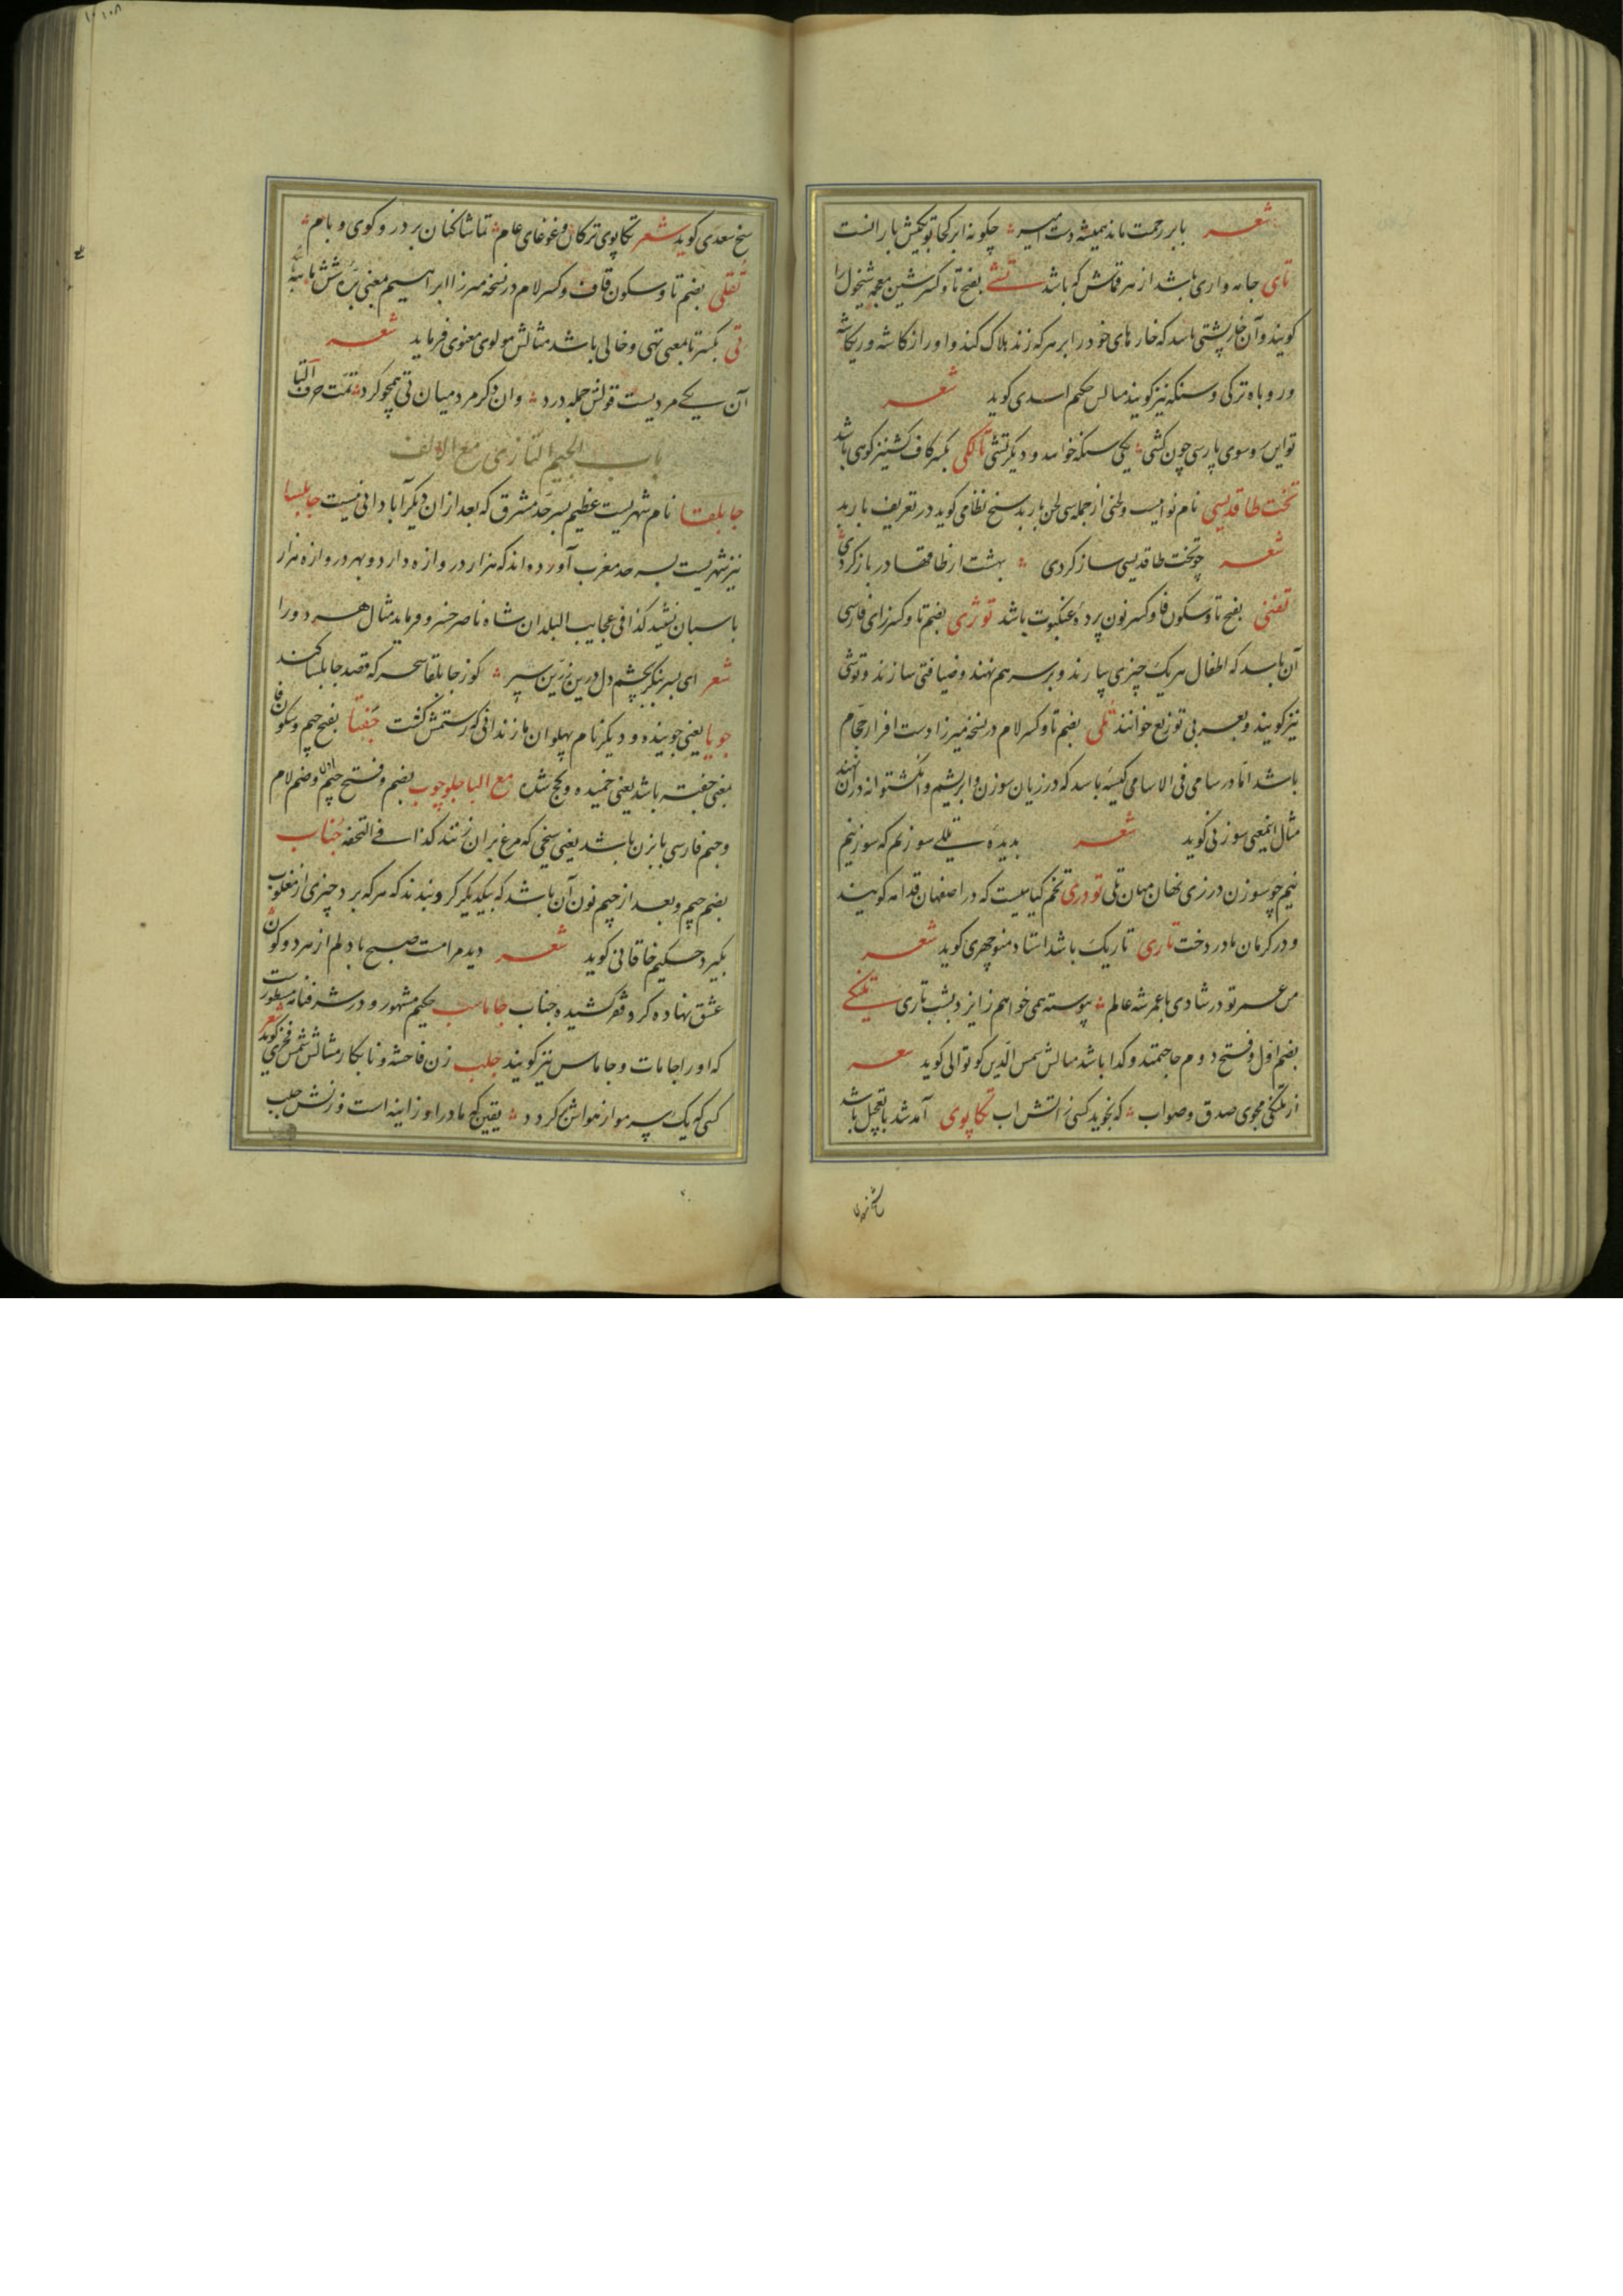 شعر بابر رحمت ماند همیشه دست امیر چگونه ابر کجا توبکیش بارانست
تای جامه واری باشد از هر قماش که باشد تشی بفتح تا و کسر شین معجمه شیخول را
کویند و آن خارپشتی باسد که خارهای خود را بر هر که زند هلاک کند و او را ژکاشه و ریکاشه
و روباه ترکی و سنکه نیز کویند مالس حکیم اسدی کوید شعر
تو این سوسوی پارسی چون کشی یکی سنکه خواند و دیکر تشی تالکی بکسر کاف کشنیز کوهی باشد
تخت طاقدیسی نام نواییست ولحنی از جمله سی لحن باربد سیخ نظامی کوید در تعریف باربد
شعر چو تخت طاقدیسی ساز کردی بهشت از طاقها در باز کردی
تفنی بفتح تا و سکون فا و کسر نون پرده عنکبوت باشد توژی بضم تا و کسر زای فارسی
آن باسد که اطفال هر یک چیزی بیارند و بر سر هم نهند و ضیافتی سازند و توشی
نیز کویند و بعربی توزیع خوانند تلی بضم تا و کسر لام در نسخه میرزا دست افزار حجام
باشد اما در سامی فی الاسامی کیسه باسد که درزیان سوزن و ابریشم و انکشتوانه در آن نهند
مثال اینمعنی سوزنی کوید شعر بدیده تلی سوزنم که سوزنیم
نیم چو سوزن درزی نهان میان تلی تودری تخم کیاهیست که در اصفهان قدامه کویند
و در کرمان مادر دخت تاری تاریک باشد استاد منوچهری کوید شعر
من عمر تو در شادی با عمر شه عالم پیوسته همی خواهم ز ایزد بشب تاری تلنکی
بضم اول و فتح دوم حاجتمند و کدا باشد مالش شمس الدین کوتوالی کوید شعر
از تلنکی مجوی صدق و صواب که نجوید کسی ز اتش اب تکاپوی آمدشد بتعجیل باشد
شیخ سعدی
شیخ سعدی کوید شعر تکاپوی ترکان و غوغای عام تماشا کنان بر در و کوی و بام
تقلی بضم تا و سکون قاف و کسر لام در نسخه میرزا ابراهیم معنی بره شش ماهه
تی بکسر تا بمعنی تهی و خالی باشد مثالش مولوی معنوی فرماید شعر
آن یکی مردیست قوتش جمله درد وان دکر مرد میان تی همچو کرد تمت حرف التا
باب الجیم التازی مع الالف
جابلقا نام شهریست عظیم بسرحد مشرق که بعد از ان دیکر آبادانی نیست جابلسا
نیز شهریست بسرحد مغرب آورده اند که هزار دروازه دارد و بهر دروازه هزار
باسبان نشیند کذا فی عجایب البلدان شاه ناصر خسرو فرماید مثال هر دو را
شعر ای پسر بنکر بچشم دل درین زرین سپر کو ز جابلقا سحرکه قصد جابلسا کند
جویا یعنی جوینده و دیکر نام پهلوان مازندرانی که رستمش کشت جفتا بفتح جیم و سکون فا
بمعنی جفته باشد یعنی خمیده و کج شده مع البا جلوجوب بضم و فتح جیم و ضم لام
و جیم فارسی بابزن باشد یعنی سیخی که مرغ بران زنند کذا فی التحفه جناب
بضم جیم و بعد از جیم نون آن باشد که بیکدیکر کرو بندند که هر که برد چیزی از مغلوب
بکیرد حکیم خاقانی کوید شعر دیدم رامت صبح با دلم از هر دو کون
عشق نهاده کرو فقر کشیده جناب جاماسب حکیم مشهور و در شرفنامه مسطورست
که او را جامات و جاماس نیز کویند جلب زن فاحشه و نابکار مثالش شمس فخری کوید شعر
کسی که یک سر مو از هواش کردد یقین که مادر او زانیه است و زنش جلب